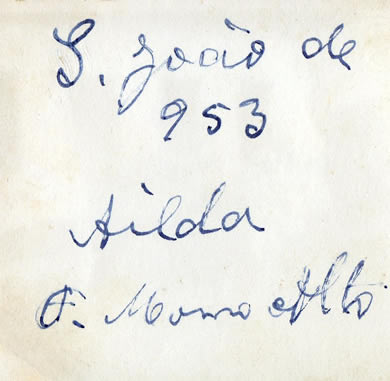 S. João de
953
Ailda
F. Morro Alto